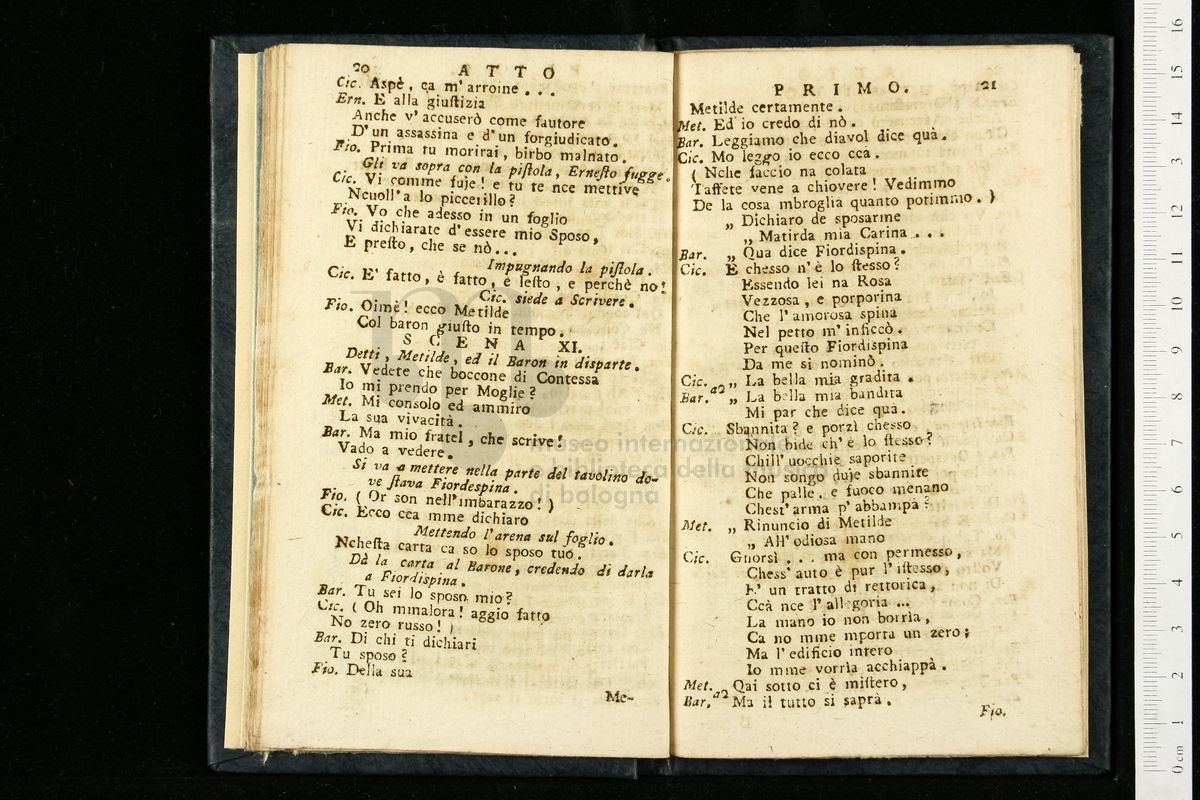 20 ATTO
Cic. Aspè, ca m'arroine . . .
Ern. E alla giuſtizia
Anche v'accuserò come fautore
D'un assassina e d'un forgiudicato.
Fio. Prima tu morirai, birbo malnato.
Gli va sopra con la piſtola, Erneſto fugge.
Cic. Vi comme fuje! e tu te nce mettive
Ncuoll'a lo piccerillo?
Fio. Vo che adesso in un foglio
Vi dichiarate d'essere mio Sposo,
E preſto, che se nò...
Impugnando la piſtola.
Cic. E' fatto, è fatto, è leſto, e perchè no!
Cic. siede a Scrivere.
Fio. Oimè! ecco Metilde
Col baron giuſto in tempo.
SCENA XI.
Detti, Metilde, ed il Baron in disparte.
Bar. Vedete che boccone di Contessa
Io mi prendo per Moglie?
Met. Mi consolo ed ammiro
La sua vivacità.
Bar. Ma mio fratel, che scrive!
Vado a vedere.
Si va a mettere nella parte del tavolino do-
ve ſtava Fiordespina.
Fio. (Or son nell'imbarazzo!)
Cic. Ecco cca mme dichiaro
Mettendo l'arena sul foglio.
Ncheſta carta ca so lo sposo tuo.
Dà la carta al Barone, credendo di darla
a Fiordispina.
Bar. Tu sei lo sposo mio?
Cic. (Oh mmalora! aggio fatto
No zero russo!)
Bar. Di chi ti dichiari
Tu sposo?
Fio. Della sua
Me-
PRIMO. 21
Metilde certamente.
Met. Ed io credo di nò.
Bar. Leggiamo che diavol dice quà.
Cic. Mo leggo io ecco cca.
(Nche faccio na colata
Taffete vene a chiovere! Vedimmo
De la cosa mbroglia quanto potimmo.)
„ Dichiaro de sposarme
„ Matirda mia Carina . . .
Bar. „ Qua dice Fiordispina.
Cic. E chesso n'è lo ſtesso?
Essendo lei na Rosa
Vezzosa, e porporina
Che l'amorosa spina
Nel petto m'inficcò.
Per queſto Fiordispina
Da me si nominò.
Cic. a2 „ La bella mia gradita.
Bar. „ La bella mia bandita
Mi par che dice quà.
Cic. Sbannita? e porzì chesso
Non bide ch'è lo ſtesso?
Chill'uocchie saporite
Non songo duje sbannite
Che palle, e fuoco menano
Cheſt'arma p'abbampà?
Met. „ Rinuncio di Metilde
„ All'odiosa mano
Cic. Gnorsì . . . ma con permesso,
Chess'auto è pur l'iſtesso,
E' un tratto di rettorica,
Ccà nce l'allegoria ...
La mano io non borrìa,
Ca no mme mporta un zero;
Ma l'edificio intero
Io mme vorrìa acchiappà.
Met. a2 Qai sotto ci è miſtero,
Bar. Ma il tutto si saprà.
Fio.
museo internazionale
e biblioteca della musica
di bologna
0 cm 1 2 3 4 5 6 7 8 9 10 11 12 13 14 15 16